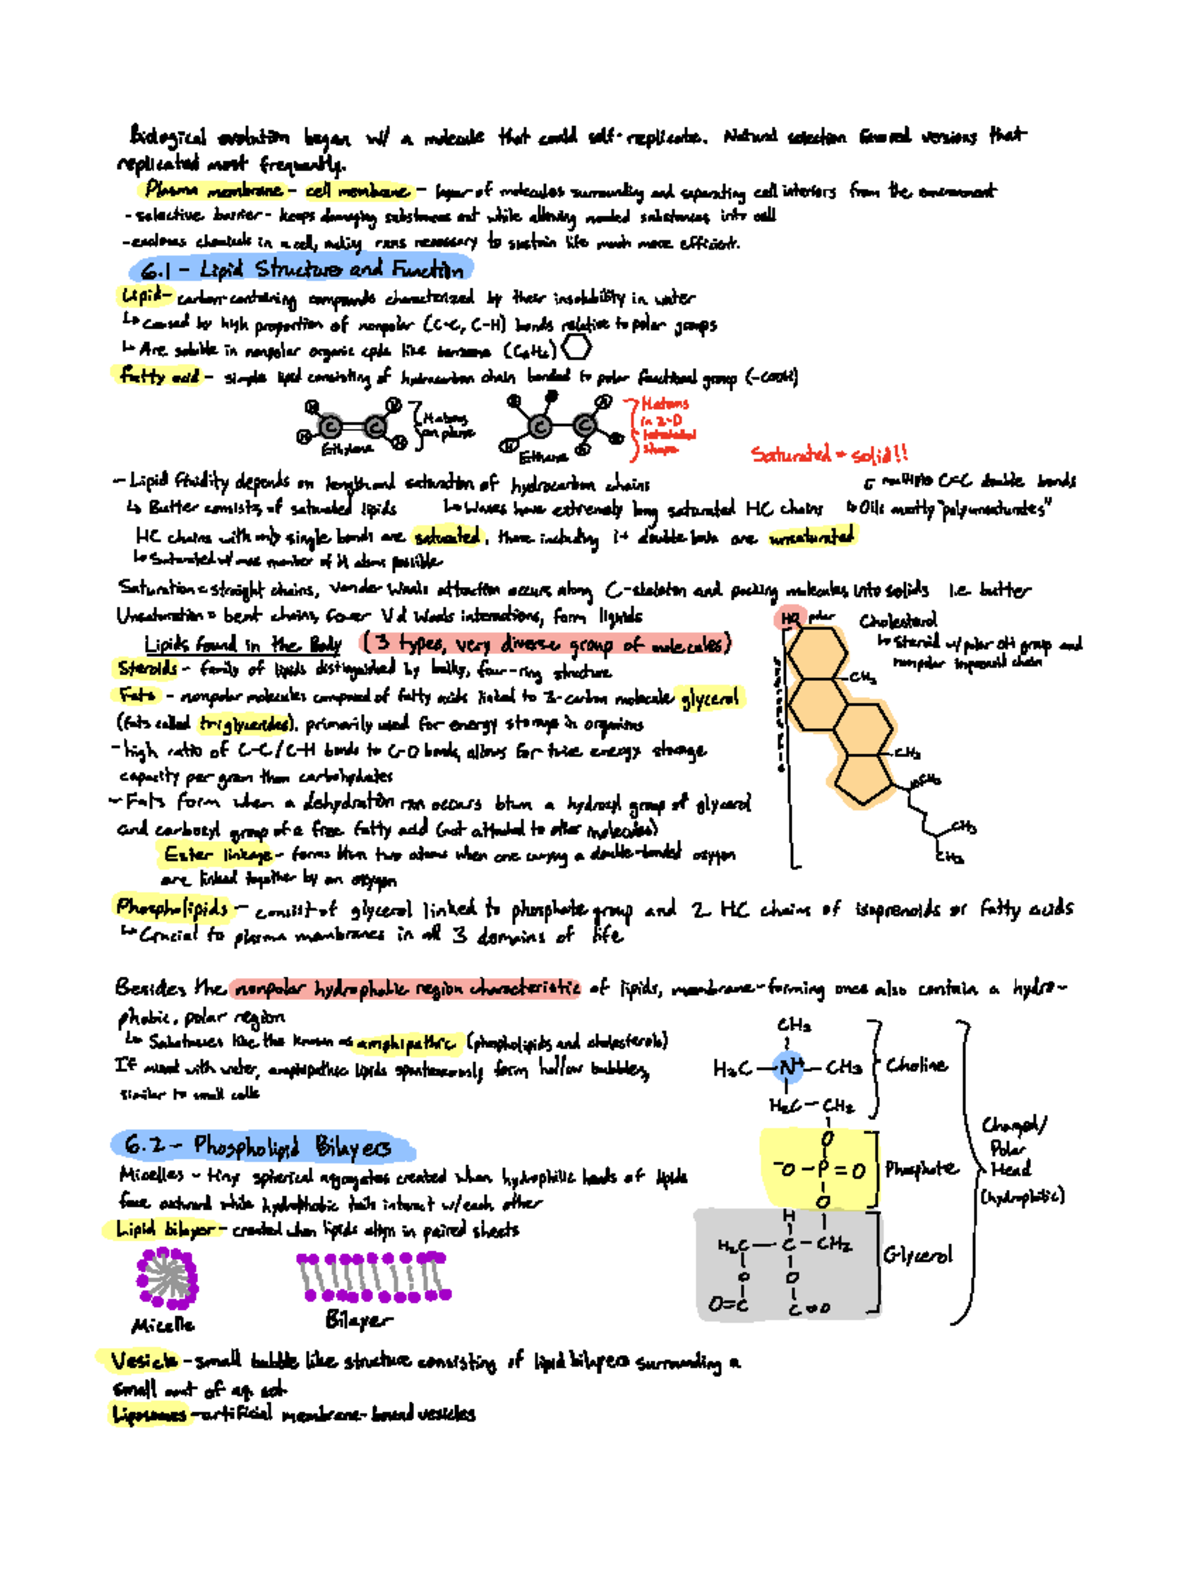 Biological evolution began w/ a molecule that could self-replicate. Natural selection favored versions that
replicated most frequently.
Plasma membrane - cell membrane - layer of molecules surrounding and separating cell interiors from the environment
- selective barrier - keeps damaging substances out while allowing needed substances into cell
- encloses chemicals in a cell, making rxns necessary to sustain life much more efficient.
6.1 - Lipid Structure and Function
Lipid - carbon-containing compounds characterized by their insolubility in water
↳ Caused by high proportion of nonpolar (C-C, C-H) bonds relative to polar groups
↳ Are soluble in nonpolar organic cpds like benzene (C6H6)
Fatty acid - simple lipid consisting of hydrocarbon chain bonded to polar functional group (-COOH)
H H C C H H
Ethylene
H atoms
on plane
C C H H
Ethane
H atoms
in 3-D
tetrahedral
shape
Saturated = solid!!
- Lipid fluidity depends on length and saturation of hydrocarbon chains
multiple C=C double bonds
↳ Butter consists of saturated lipids ↳ Waxes have extremely long saturated HC chains ↳ Oils mostly "polyunsaturates"
HC chains with only single bonds are saturated, those including 1+ double bonds are unsaturated
↳ Saturated w/ max number of H atoms possible
Saturation = straight chains, vander Waals attraction occurs along C-skeleton and packing molecules into solids i.e. butter
Unsaturation = bent chains, fewer Vd Waals interactions, form liquids
Lipids found in the Body (3 types, very diverse group of molecules)
HO polar
Cholesterol
↳ Steroid w/ polar OH group and
nonpolar isoprenoid chain
CH3
CH3
CH3
CH3
CH3
Steroids - family of lipids distinguished by bulky, four-ring structure
Fats - nonpolar molecules composed of fatty acids linked to 3-carbon molecule glycerol
(fats called triglycerides), primarily used for energy storage in organisms
- high ratio of C-C/C-H bonds to C-O bonds, allows for twice energy storage
capacity per gram than carbohydrates
- Fats form when a dehydration rxn occurs btwn a hydroxyl group of glycerol
and carboxyl group of a free fatty acid (not attached to other molecules)
Ester linkage - forms btwn two atoms when one carrying a double-bonded oxygen
are linked together by an oxygen
Phospholipids - consist of glycerol linked to phosphate group and 2 HC chains of isoprenoids or fatty acids
↳ Crucial to plasma membranes in all 3 domains of life
Besides the nonpolar hydrophobic region characteristic of lipids, membrane-forming ones also contain a hydro-
phobic, polar region
↳ Substances like this known as amphipathic (phospholipids and cholesterols)
If mixed with water, amphipathic lipids spontaneously form hollow bubbles,
similar to small cells
CH3
H3C - N+ - CH3
H2C - CH2
Choline
O
-O - P = O
O
Phosphate
H
H2C - C - CH2
O O
O=C C=O
Glycerol
Charged/
Polar
Head
(hydrophilic)
6.2 - Phospholipid Bilayers
Micelles - tiny spherical aggregates created when hydrophilic heads of lipids
face outward while hydrophobic tails interact w/ each other
Lipid bilayer - created when lipids align in paired sheets
Micelle
Bilayer
Vesicle - small bubble like structure consisting of lipid bilayers surrounding a
small amt of aq. sol.
Liposomes - artificial membrane-bound vesicles